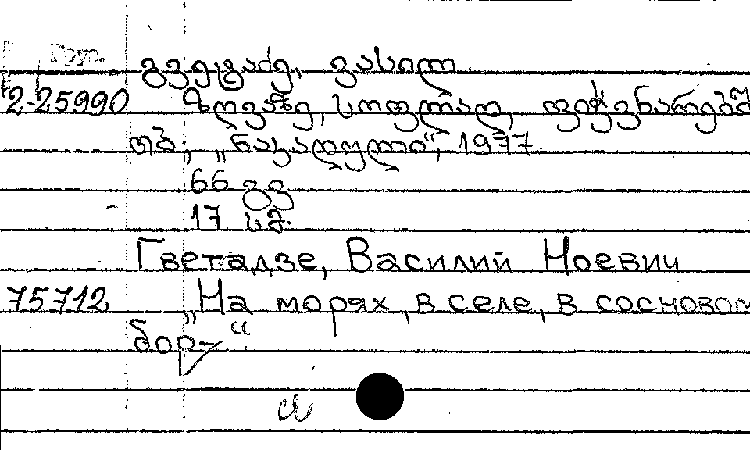 Груз.
გვეტაძე, ვასილ
2-25990 ზღვაზე, სოფლად, ფიჭვნარებში
თბ., „ნაკადული“, 1977
66 გვ
17 სმ.
Гветадзе, Василий Ноевич
75712 „На морях, в селе, в сосновом
бору“